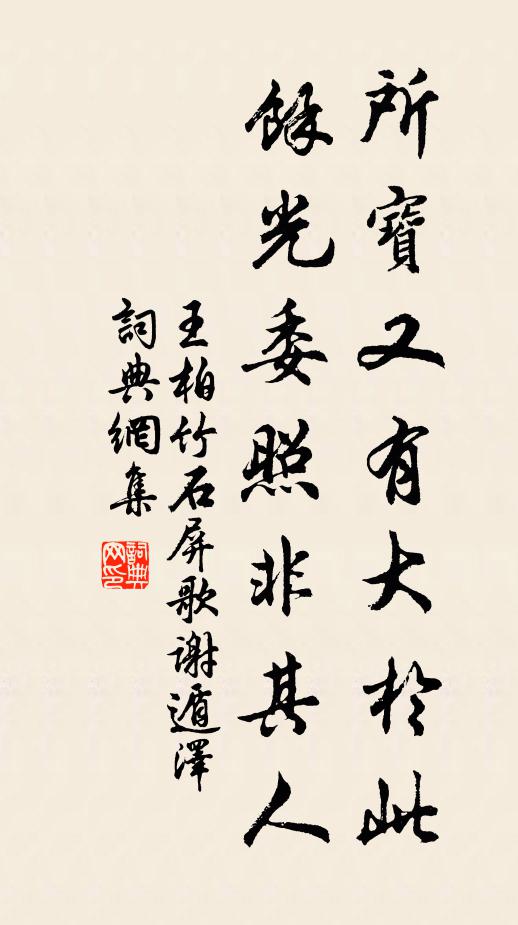 所寶又有大於此
餘光委照非其人
王柏竹石屏歌謝遁澤
詞典網集
詞典網印